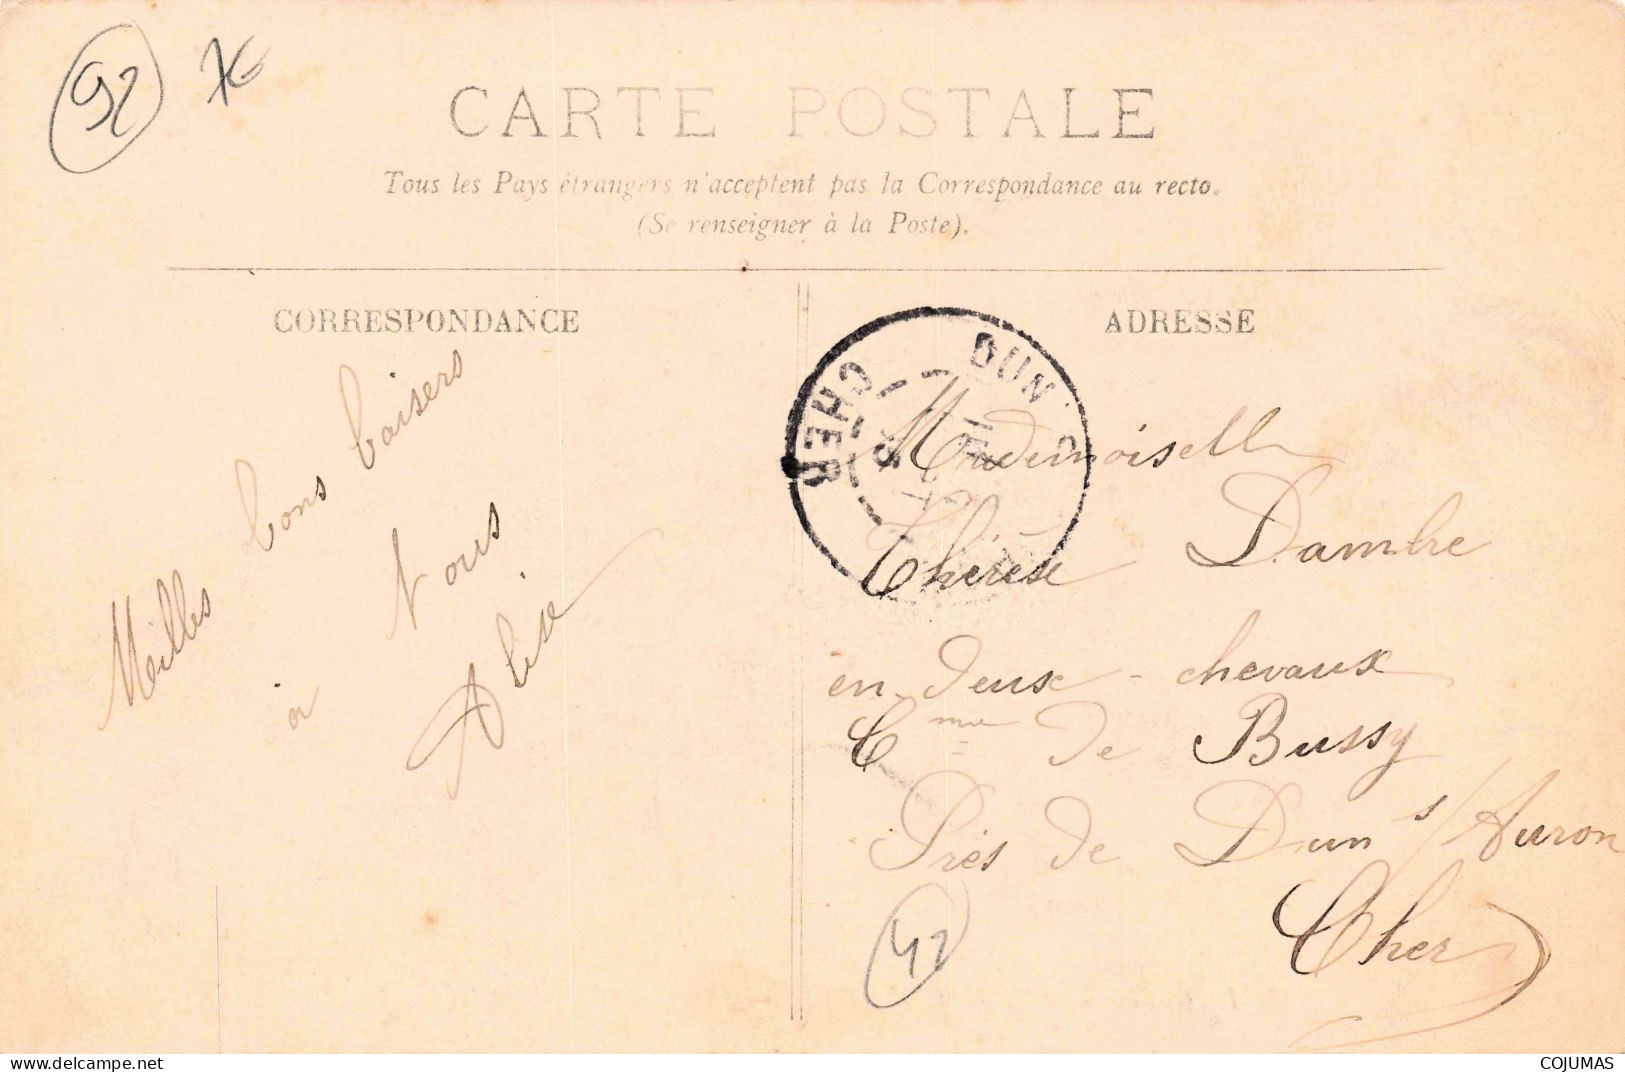 92 7€
CARTE POSTALE
Tous les Pays étrangers n'acceptent pas la Correspondance au recto.
(Se renseigner à la Poste).
CORRESPONDANCE
Meilles bons baisers
à Vous
Alise
ADRESSE
DUN
CHER
Mademoiselle
Thérèse Dambre
en deux-chevaux
Cme de Bussy
Près de Dun s/Auron
Cher
42
www.delcampe.net
COJUMAS